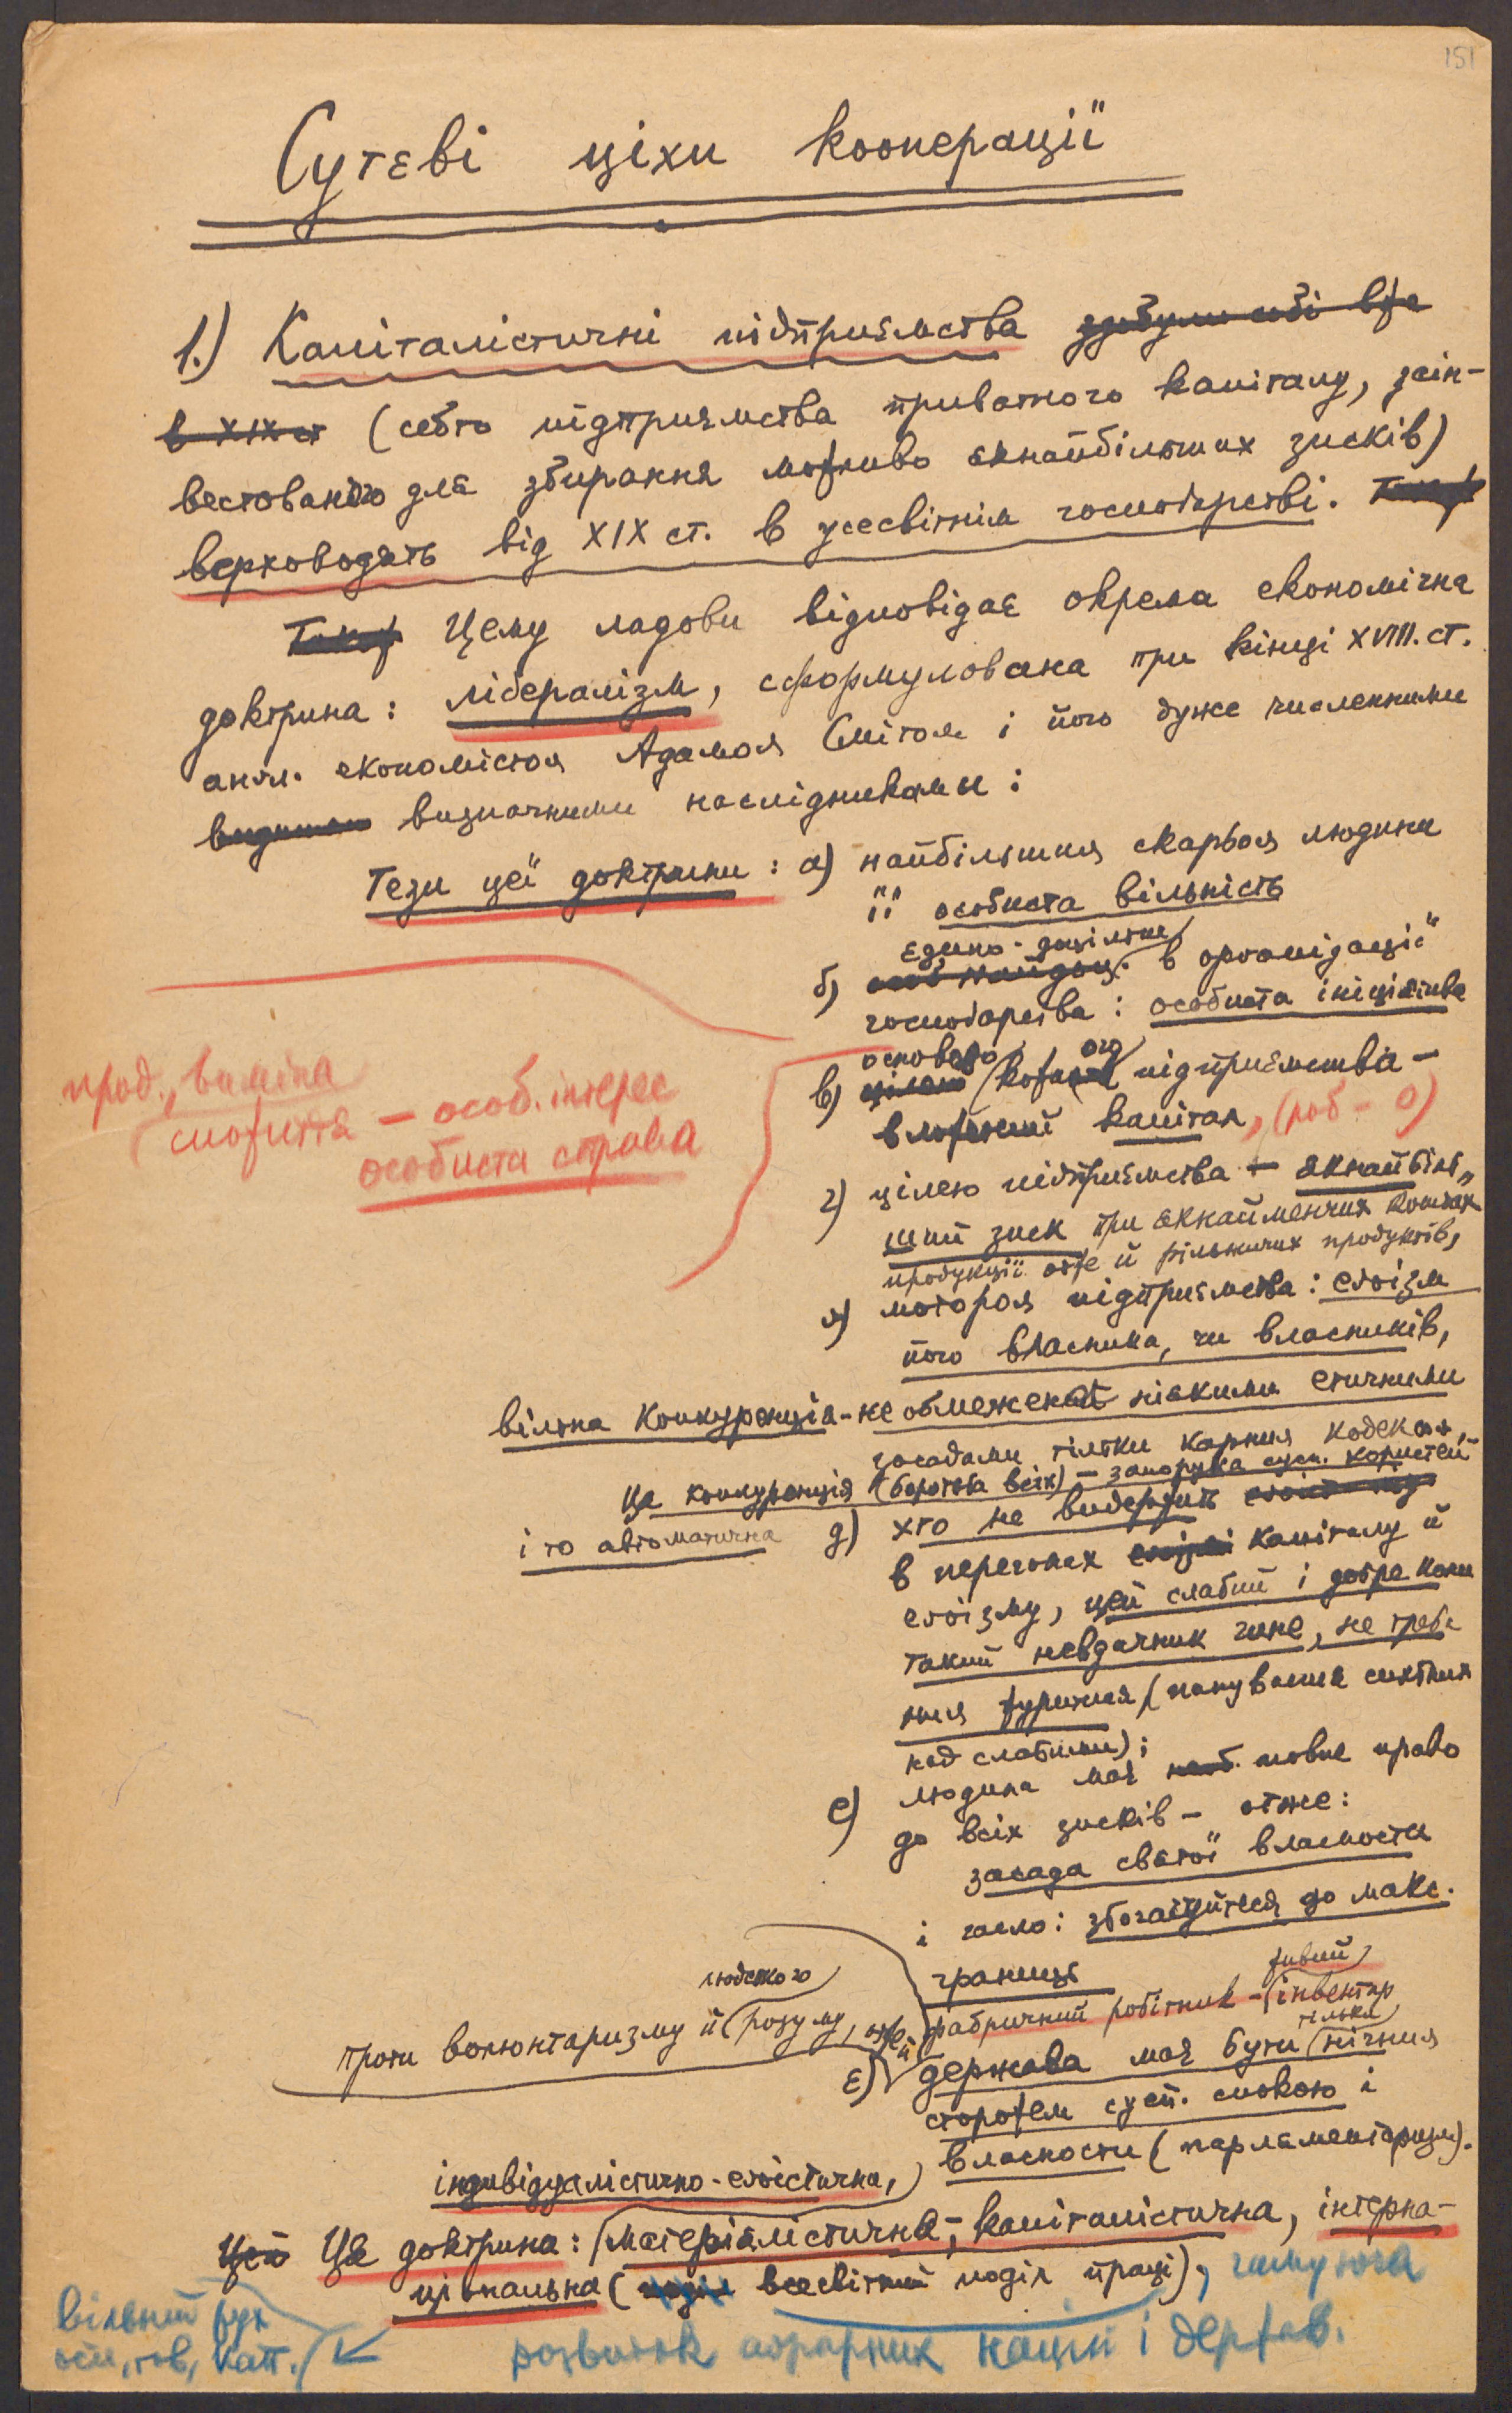 151
Сутєві ціхи кооперації
1.) Капіталістичні підприємства здобули собі вже
в XIX ст (себто підприємства приватного капіталу, заін-
вестованого для збирання можливо якнайбільших зисків)
верховодять від XIX ст. в усесвітнім господарстві.
Цему ладови відповідає окрема економічна
доктрина: лібералізм, сформулована при кінці XVIII. ст.
англ. економістом Адамом Смітом і його дуже численними
визначними наслідниками:
Тези цеї доктрини: а) найбільшим скарбом людини
її особиста вільність
єдино-доцільне
б) в організації
господарства: особиста ініціятива
основою ого
в) кожного підприємства -
вложений капітал, (роб - 0)
прод., виміна
спожиття - особ. інтерес
особиста справа
г) цілею підприємства - якнайбіль-
ший зиск при якнайменчих коштах
продукції отже й рільничих продуктів,
ґ) мотором підприємства: егоїзм
його власника, чи власників,
вільна конкуренція - не обмежена ніякими етичними
засадами тільки карним кодексом,
Ця конкуренція (боротьба всіх) - запорука сусп. користей
і то автоматична
д) хто не видержить
в перегонах капіталу й
егоїзму, цей слабий і добре коли
такий невдачник гине, не треба
ним журитися (панування сильних
над слабими);
е) людина має повне право
до всіх зисків - отже:
засада святої власности
і гасло: збогачуйтеся до макс.
границь
живий
фабричний робітник - інвентар
людського
проти волюнтаризму й розуму, отже й
тільки
є) держава має бути нічним
сторожем сусп. спокою і
власности (парляментаризм).
індивідуалістично-егоїстична,
Ця доктрина: матеріялістична, капіталістична, інтерна-
ціональна (всесвітний поділ праці), гамуюча
вільний рух
осіб, тов, кап.
розвиток аграрних націй і держав.